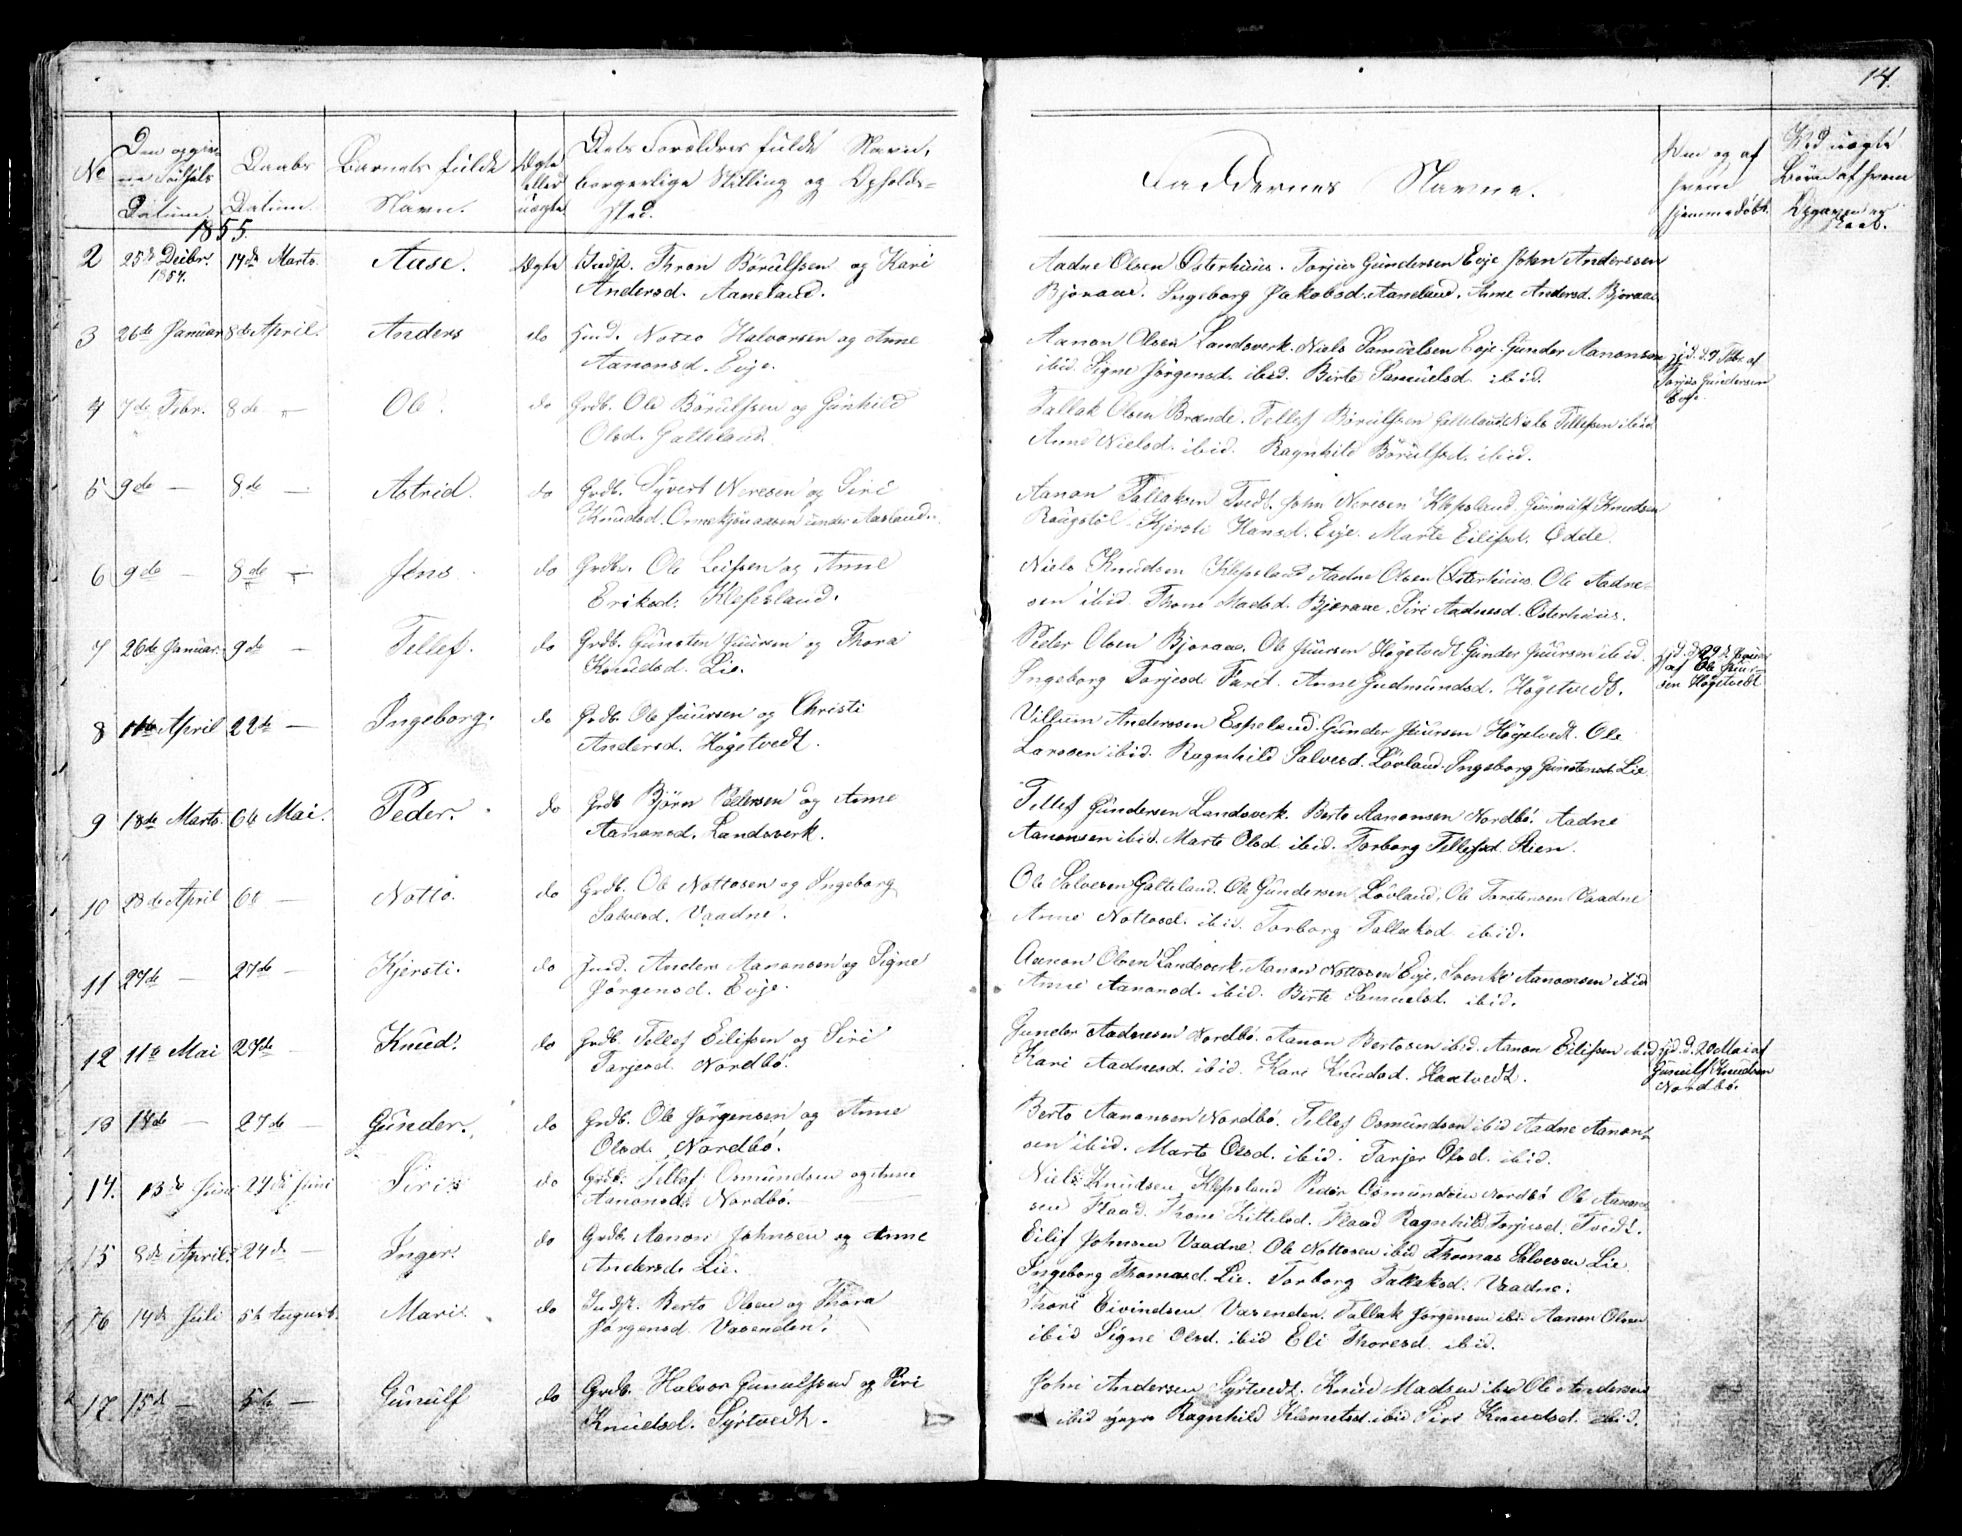 14.
No
Den opgiv-
ne Fødsels
Datum.
Daabs
Datum.
Barnets fulde
Navn.
Ægte
eller
uægte
Dets Forældres fulde Navn,
borgerlige Stilling og Opholds-
sted.
Faddernes Navne.
og af
hvem
hjemmedøbt.
Ved uægte
Børn af hvem
Opgaven er
skeet.
1855.
2 25de Decbr. 1854. 14de Marts. Aase. Ægte Indst. Thron Børulfsen og Kari
Andersd. Aaneland.
Aadne Olsen Osterhuus. Torjus Gundersen Evje John Andersen
Bjoraae. Ingeborg Jakobsd. Aaneland. Anne Andersd. Bjoraae
3 26de Januar 8de April. Anders do Notto Halvorsen og Anne
Aanonsd. Evje.
Aanon Olsen Landsverk. Niels Samuelsen Evje. Gunder Aanonsen
ibid. Signe Jørgensd. ibid. Birte Samuelsd. ibid.
hjd. d. 7 Febr. af
Torjus Gundersen
Evje
4 7de Febr. 8de - Ole. do Grdb. Ole Børulfsen og Gunhild
Olsd. Galteland.
Tallak Olsen Brænde. Tellef Børulfsen Galteland Niels Tellefsen ibid
Anne Nielsd. ibid. Ragnhild Børulfsd. ibid.
5 9de - 8de - Astrid. do Grdb. Syvert Neresen og Siri
Knudsd. under Aasland.
Aanon Tallaksen Tvedt. John Neresen Klepsland. Gunnulf Knudsen
Kjersti Hansd. Evje. Marte Eilifsd. Odde.
6 9de - 8de - Jens do Grdb. Ole Leifsen og Anne
Eriksd. Klepsland.
Niels Knudsen Klepsland Aadne Olsen Osterhuus. Ole Aadne-
sen ibid. Thone Madsd. Bjoraae. Siri Aadnesd. Osterhuus.
7 26de Januar. 9de - Tellef. do Grdb. Gunsten Juursen og Thora
Knudsd. Lie.
Peder Olsen Bjoraae. Ole Juursen Høgetvedt Gunder Juursen ibid.
Ingeborg Torjesd Anne Gudmundsd. Høgetvedt.
hjd. d. 29de Januar
af Ole Juur-
sen Høgetvedt
8 11te April 22de - Ingeborg. do Grdb. Ole Juursen og Christi
Andersd. Høgetvedt.
Villum Anderssen Espeland. Gunder Juursen Høgetvedt. Ole
Larssen ibid. Ragnhild Salvesd. Løvland. Ingeborg Gunstensd. Lie.
9 18de Marts. 6te Mai. Peder. do Grdb Bjørn Pedersen og Anne
Aanonsd. Landsverk.
Tellef Gundersen Landsverk. Berte Aanonsen Nordbø. Aadne
Aanonsen ibid. Marte Olsd. ibid. Torborg Tellefsd. Stien.
10 28de April 6te - Notto. do Grdb. Ole Nottosen og Ingeborg
Salvesd. Vaadne.
Ole Salvesen Galteland. Ole Gundersen Løvland, Ole Torstensen Vaadne
Anne Nottosd. ibid. Torborg Tallaksd. ibid.
11 27de - 27de - Kjersti. do Anders Aanonsen og Signe
Jørgensd. Evje.
Aanon Olsen Landsverk. Aanon Nottosen Evje. Svenke Aanonsen ibid
Anne Aanonsd. ibid. Birte Samuelsd. ibid.
12 11te Mai 27de - Knud. do Grdb. Tellef Eilifsen og Siri
Tarjesd. Nordbø.
Gunder Aadnesen Nordbø. Aanon Bertosen ibid. Aanon Eilifsen ibid
Kari Aadnesd. ibid. Kari Knudsd. Haatvedt.
hjd. d. 20 Mai af
Gunulf Knudsen
Nordbø.
13 14de - 27de - Gunder. do Grdb. Ole Jørgensen og Anne
Olsd. Nordbø.
Berto Aanonsen Nordbø. Tellef Osmundsen ibid Aadne Aanon-
sen ibid. Marte Olsd. ibid. Tarjer Olsd. ibid.
14. 13de Juni 24de Juni Siri do Grdb. Tellef Osmundsen og Anne
Aanonsd. Nordbø.
Niels Knutsen Klepsland Peder Osmundsen Nordbø Ole Aanon-
sen Flaad. Thone Kittelsd. Flaad Ragnhild Torjusd. Tvedt.
15 8de April 24de - Inger. do Grdb. Aanon Johnsen og Anne
Andersd. Lie.
Eilif Johnsen Vaadne. Ole Nottosen ibid Thomas Salvesen Lie
Ingeborg Thomasd. Lie. Torborg Tallaksd. Vaadne.
16 14de Juli 5te August. Mari. do Indst. Berto Olsen og Thora
Jørgensd. Vasenden.
Thore Eivindsen Vasenden. Tallak Jørgensen ibid. Aanon Olsen
ibid Signe Olsd. ibid Eli Thoresd. ibid.
17 15de - 5te - Gunulf do Grdb. Halvor Gunulfsen og Siri
Knudsd. Syrtvedt.
John Andersen Syrtvedt. Knud Madsen ibid Ole Andersen
ibid Ragnhild Klemetsd. ibid Siri Knudsd. ibid.